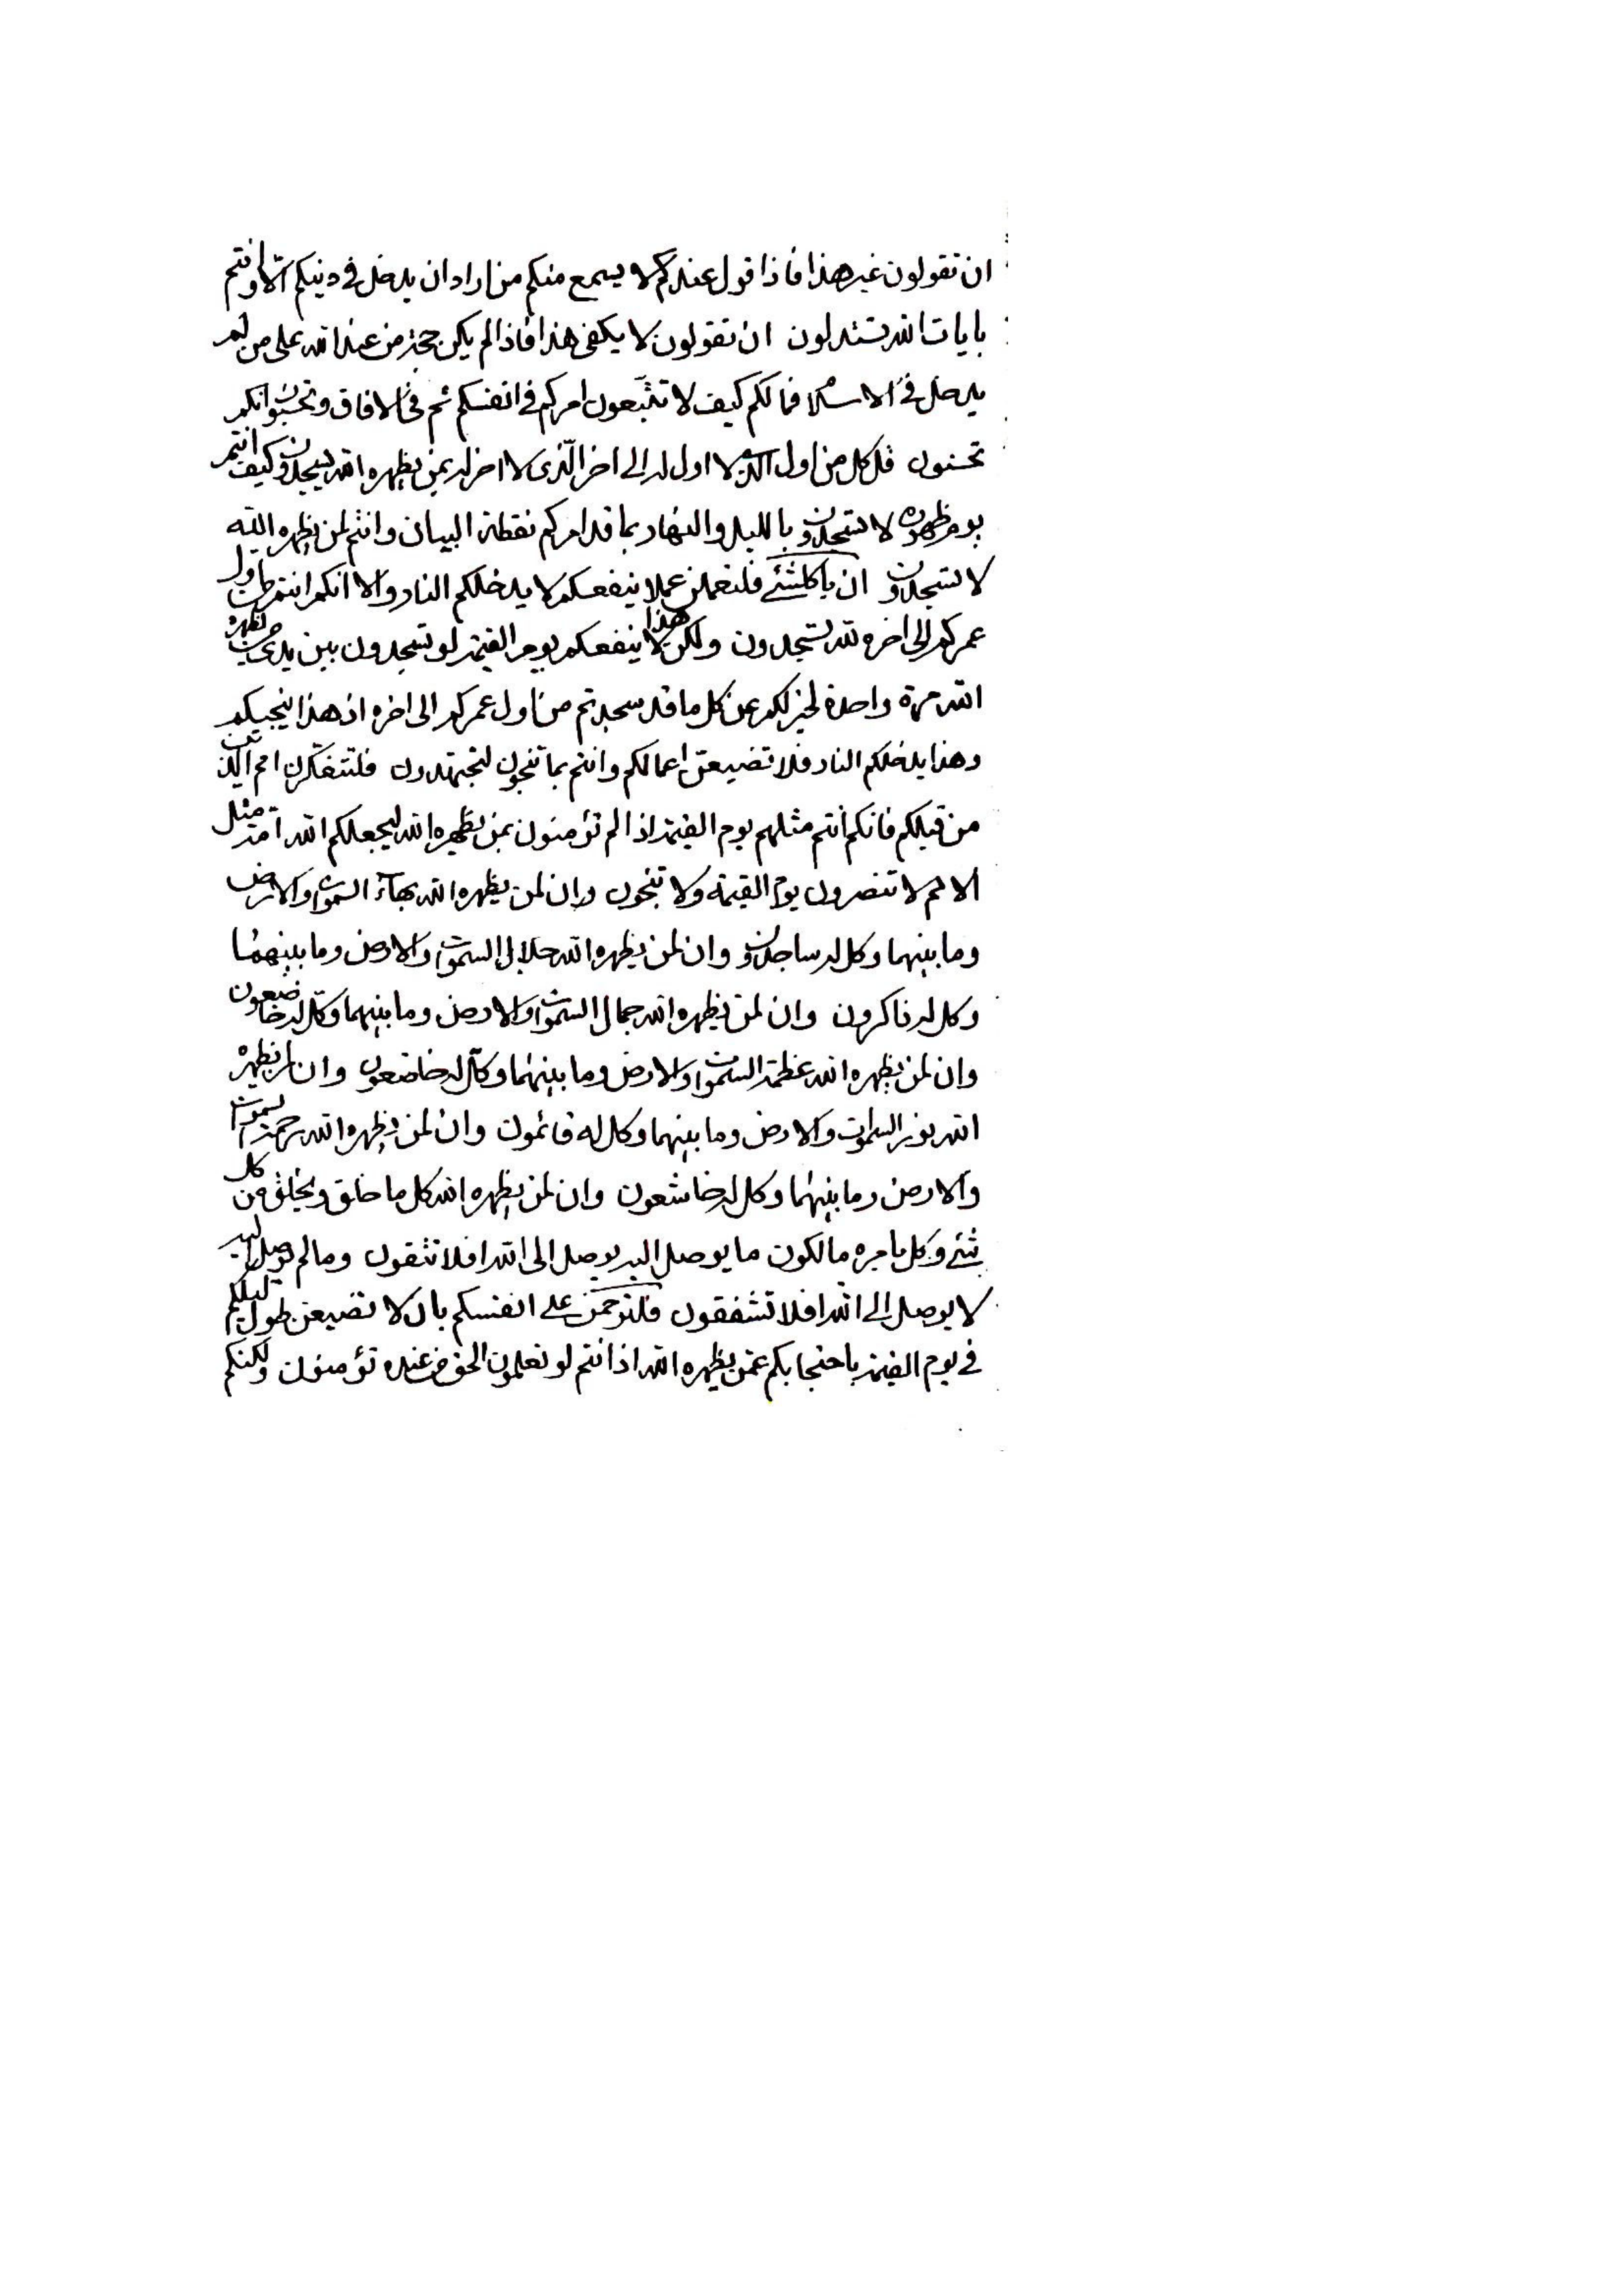 ان تقولون غير هذا فاذا قول عندكم لا يسمع منكم من اراد ان يدخل في دينكم الا وانتم
بايات الله تستدلون ان تقولون لا يكفي هذا فاذا لم يكن حجة من عند الله على من لم
يدخل في الاسلام فما لكم كيف لا تتبعون امركم في انفسكم ثم في الافاق وتحسبون انكم
تحسنون قل كل من اول الذي لا اول له الى اخر الذي لا اخر له بمن يظهره الله يسجدون وكيف انتم
يوم ظهوره لا تسجدون بالليل والنهار بما قد امركم نقطة البيان وانتم لمن يظهره الله
لا تسجدون ان يا كلشئ فلتعملن عملا ينفعكم لا يدخلكم النار والا انكم انتم من اول
عمركم الى اخره لله تسجدون ولكن هذا لا ينفعكم يوم القيمة لو تسجدون بين يدي من يظهره
الله مرة واحدة لخير لكم عن كل ما قد سجدتم من اول عمركم الى اخره اذ هذا ينجيكم
وهذا يدخلكم النار فلا تضيعن اعمالكم وانتم بما تنجون لتجتهدون فلتتفكرن امم الذين
من قبلكم فانكم انتم مثلهم يوم القيمة اذا لم تؤمنون بمن يظهره الله ليجعلكم الله امة مثل
الامم لا تنصرون يوم القيمة ولا تنجون وان لمن يظهره الله بهاء السموات والارض
وما بينهما وكل له ساجدون وان لمن يظهره الله جلال السموات والارض وما بينهما
وكل له ذاكرون وان لمن يظهره الله جمال السموات والارض وما بينهما وكل له خاضعون
وان لمن يظهره الله عظمة السموات والارض وما بينهما وكل له خاضعون وان لمن يظهره
الله نور السموات والارض وما بينهما وكل له قائمون وان لمن يظهره الله رحمة السموات
والارض وما بينهما وكل له خاشعون وان لمن يظهره الله كل ما خلق ويخلق من كل
شئ وكل بامره مالكون ما يوصل اليه يوصل الى الله افلا تتقون وما لم يوصل اليه
لا يوصل الى الله افلا تشفقون فلترحمن على انفسكم بان لا تضيعن طول ليلكم
في يوم القيمة باحتجابكم عمن يظهره الله اذ انتم لو تعلمون الحق من عنده تؤمنون ولكنكم